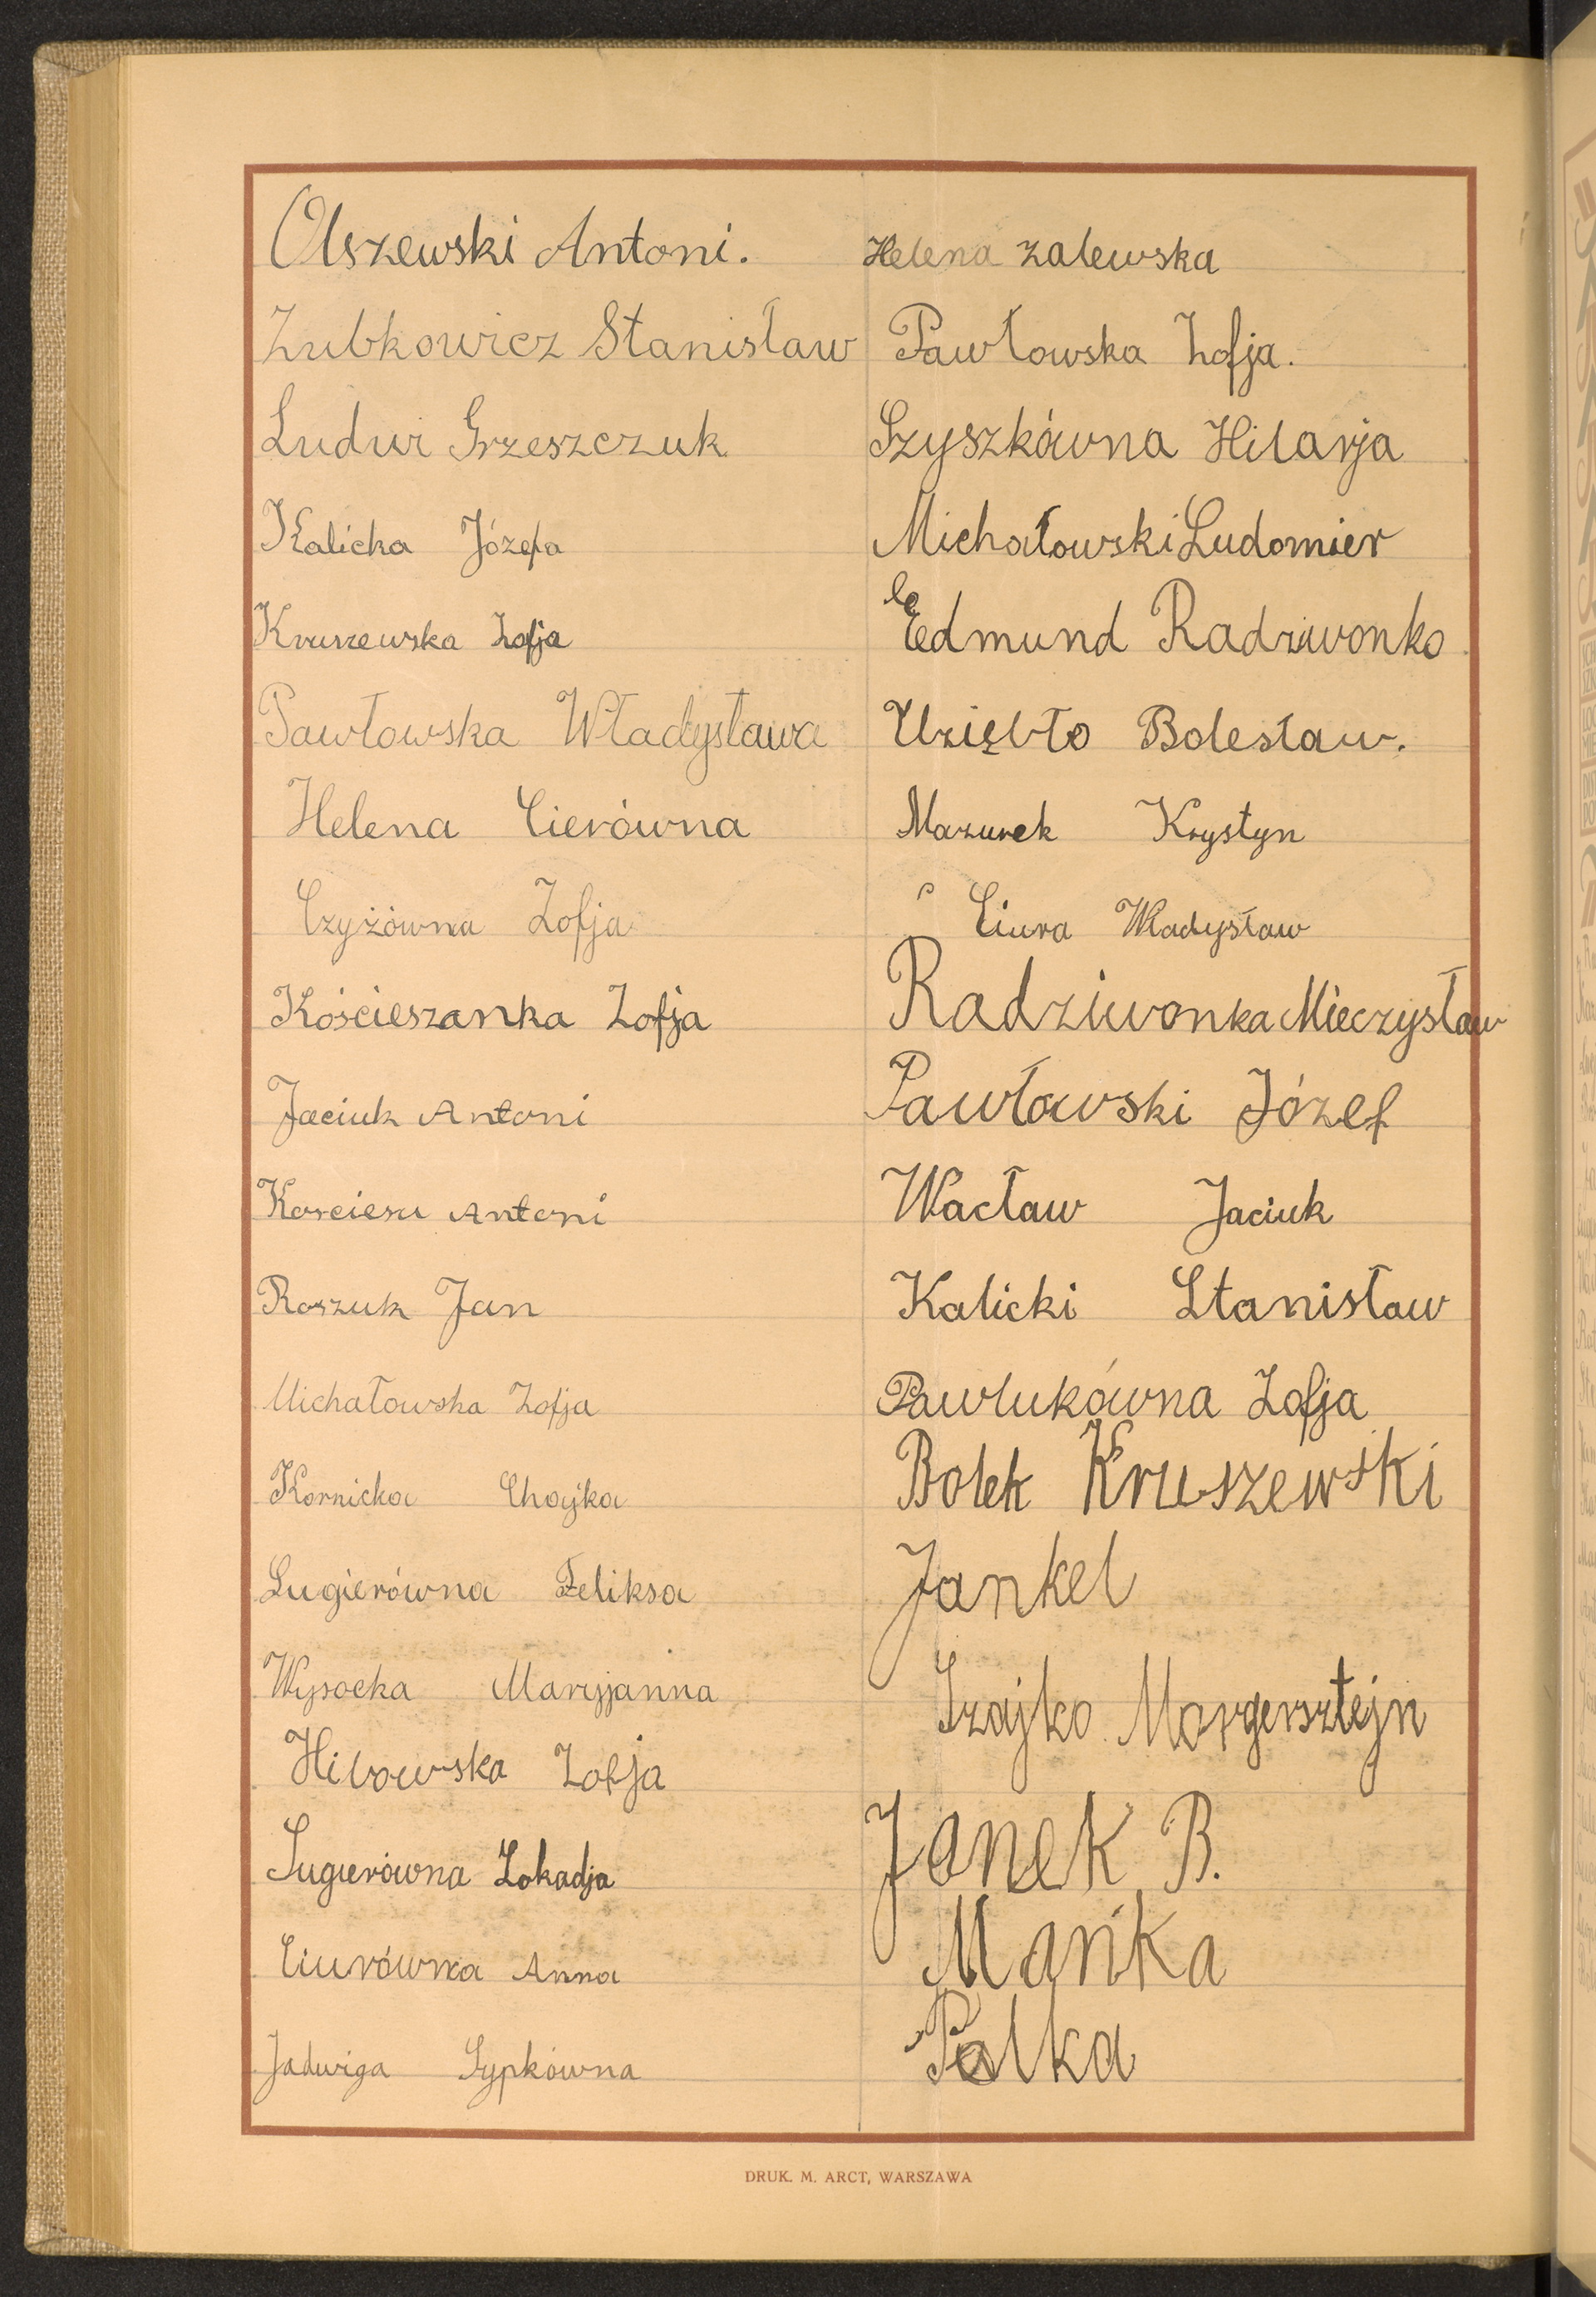 Olszewski Antoni.
Zubkowicz Stanisław
Ludwi Grzeszczuk
Kalicka Józefa
Kruszewska Zofja
Pawłowska Władysława
Helena Cierówna
Czyżówna Zofja
Kościeszanka Zofja
Jaciuk Antoni
Kosciesza Antoni
Roszuk Jan
Michałowska Zofja
Kornicka Chajka
Lugierówna Feliksa
Wysocka Maryjanna
Hibowska Zofja
Sugierówna Lokadja
Ciurówna Anna
Jadwiga Sypkówna
Helena Zalewska
Pawłowska Zofja.
Szyszkówna Hilarja
Michałowski Ludomier
Edmund Radziwonko
Uziębło Bolesław.
Mazurek Krystyn
Ciura Władysław
Radziwonka Mieczysław
Pawłowski Józef
Wacław Jaciuk
Kalicki Stanisław
Pawlukówna Zofja
Bolek Kruszewski
Jankel
Szajko Morgensztejn
Janek B.
Mańka
Polka
DRUK. M. ARCT, WARSZAWA